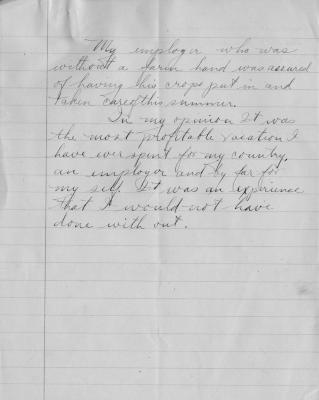 My employer who was
without a farm hand was assured
of having his crops put in and
taken care of this summer.
In my opinion It was
the most profitable vacation I
have ever spent for my country,
an employer and by far for
my self. It was an experience
that I would not have
done with out.